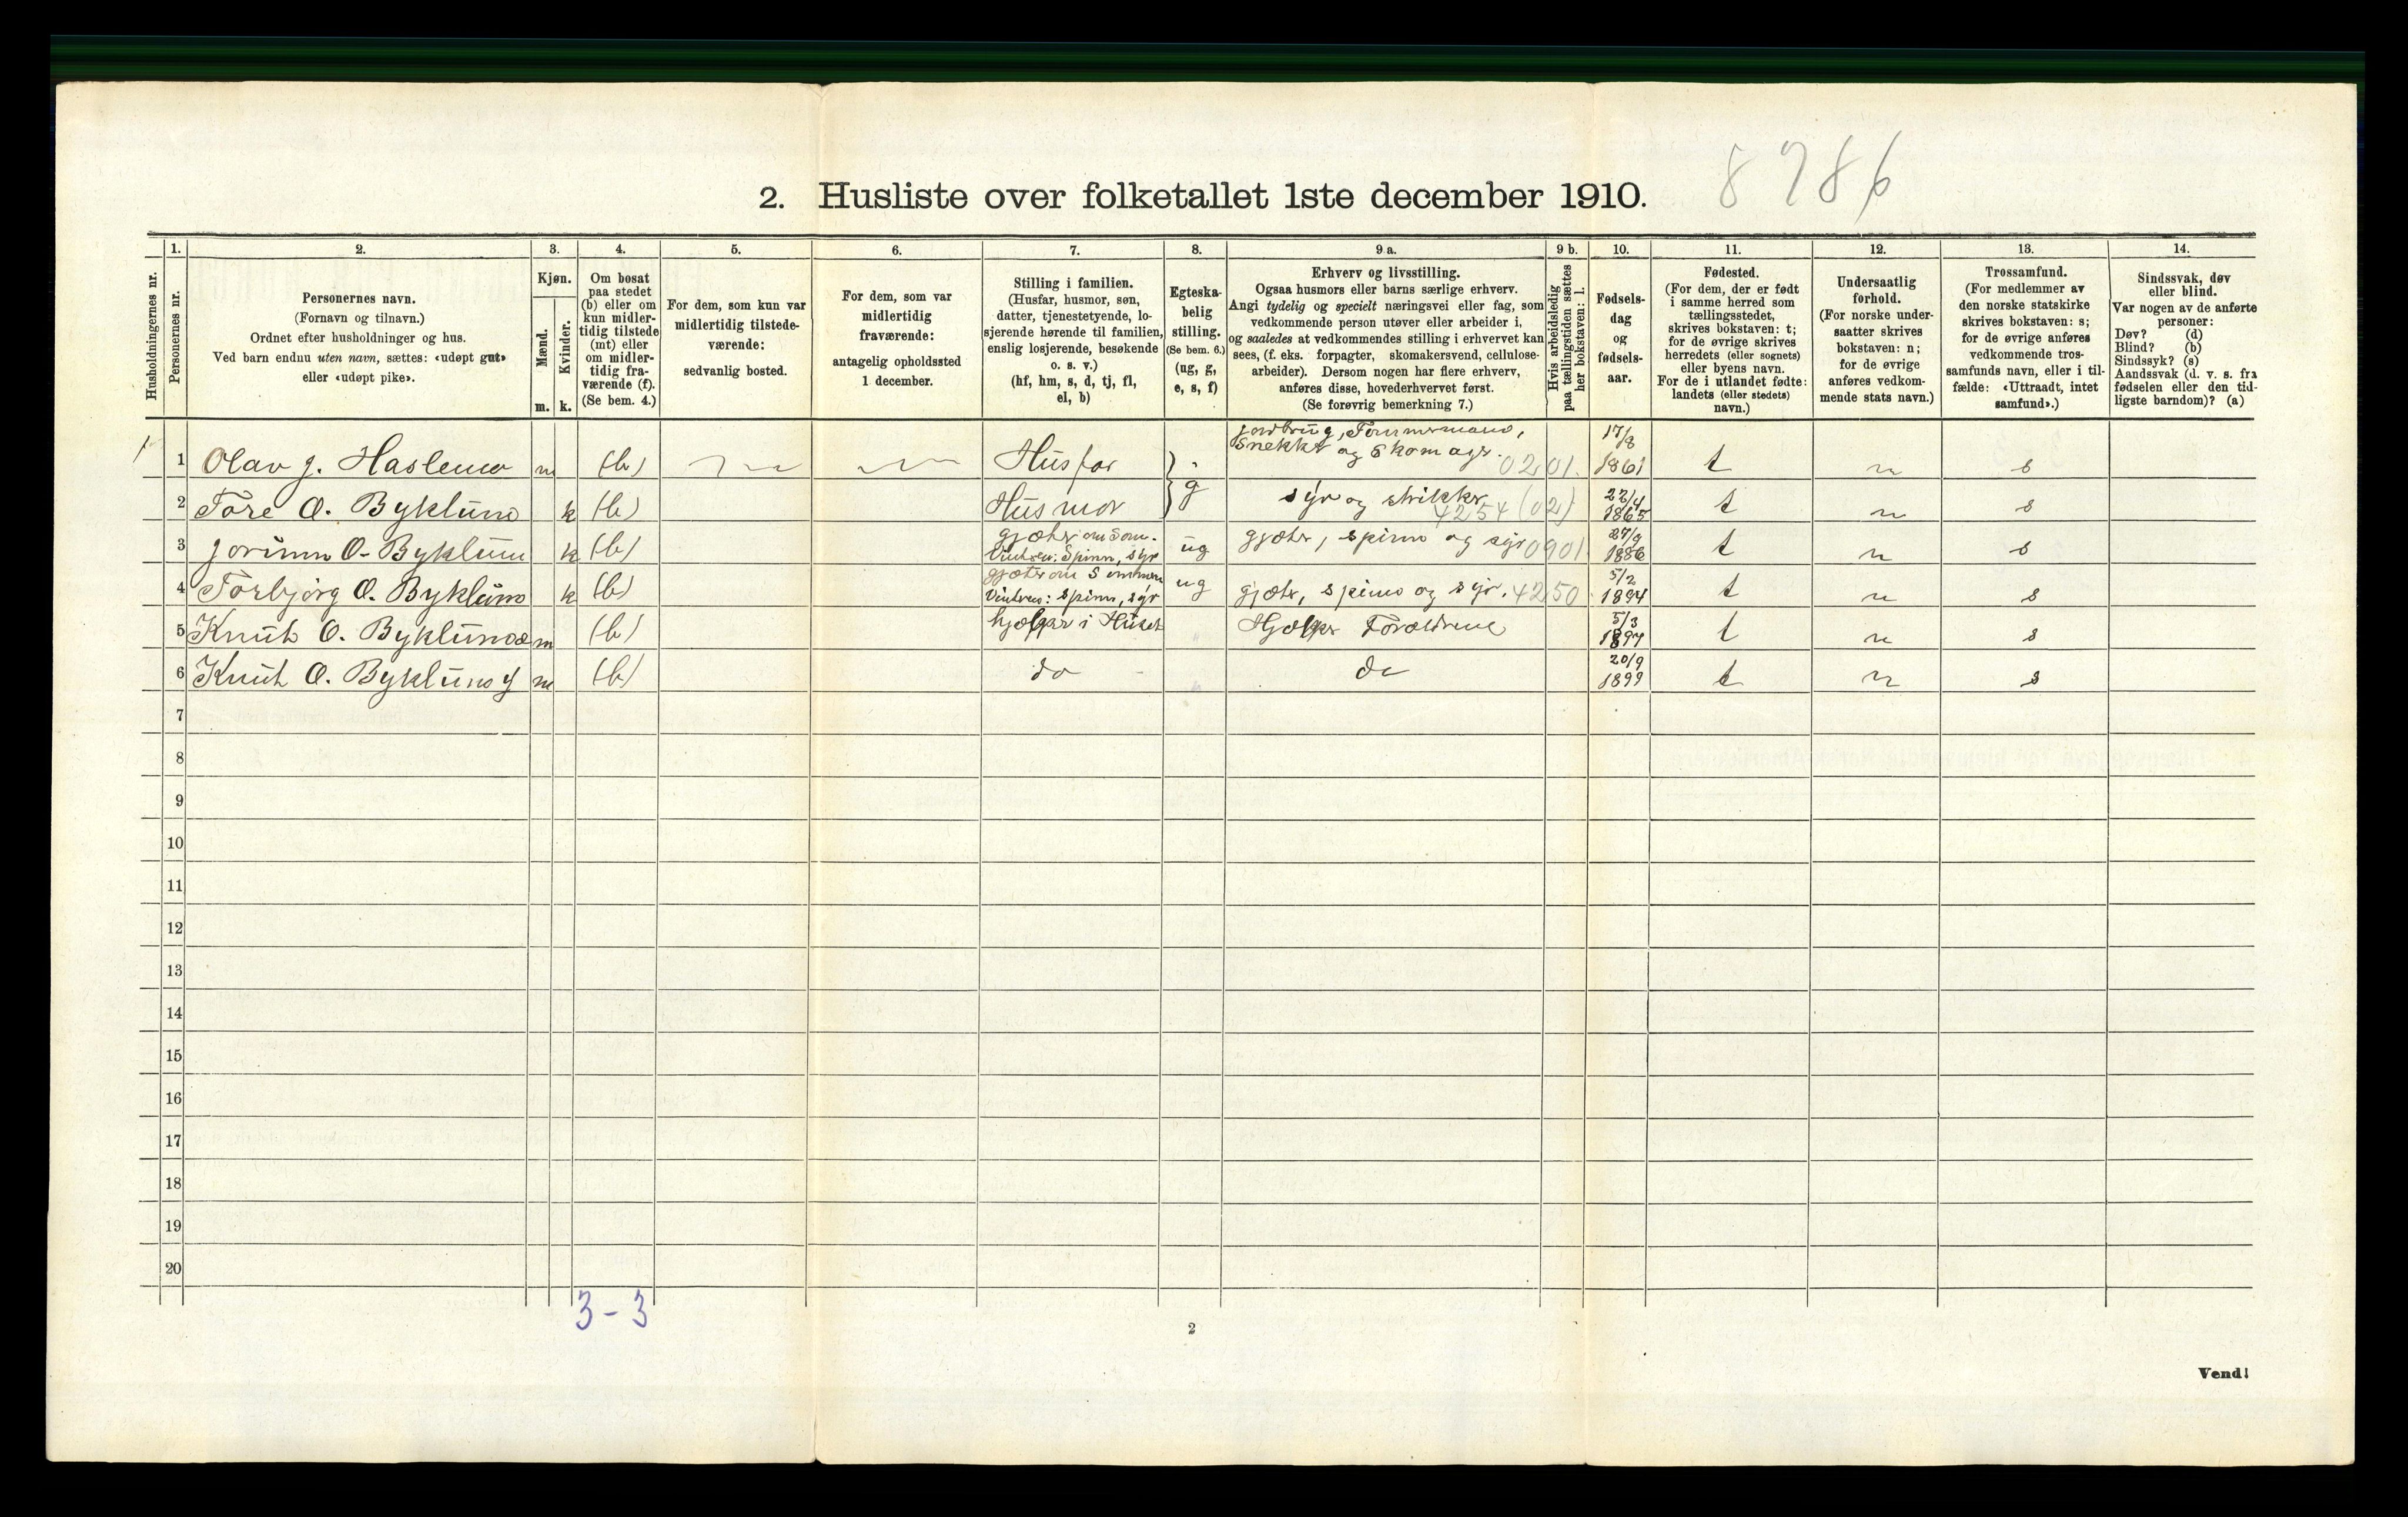 8786
2. Husliste over folketallet 1ste december 1910.
Husholdningernes nr.
1.
Personernes nr.
2.
Personernes navn.
(Fornavn og tilnavn.)
Ordnet efter husholdninger og hus.
Ved barn endnu uten navn, sættes: «udøpt gut»
eller «udøpt pike».
3.
Kjøn.
Mænd.
Kvinder.
m. k.
4.
Om bosat
paa stedet
(b) eller om
kun midler-
tidig tilstede
(mt) eller
om midler-
tidig fra-
værende (f).
(Se bem. 4.)
5.
For dem, som kun var
midlertidig tilstede-
værende:
sedvanlig bosted.
6.
For dem, som var
midlertidig
fraværende:
antagelig opholdssted
1 december.
7.
Stilling i familien.
(Husfar, husmor, søn,
datter, tjenestetyende, lo-
sjerende hørende til familien,
enslig losjerende, besøkende
o. s. v.)
(hf, hm, s, d, tj, fl,
el, b)
8.
Egteska-
belig
stilling.
(Se bem. 6.)
(ug, g,
e, s, f)
9 a.
Erhverv og livsstilling.
Ogsaa husmors eller barns særlige erhverv.
Angi tydelig og specielt næringsvei eller fag, som
vedkommende person utøver eller arbeider i,
og saaledes at vedkommendes stilling i erhvervet kan
sees, (f. eks. forpagter, skomakersvend, cellulose-
arbeider). Dersom nogen har flere erhverv,
anføres disse, hovederhvervet først.
(Se forøvrig bemerkning 7.)
9 b.
Hvis arbeidsledig
paa tællingstiden sættes
her bokstaven: l.
10.
Fødsels-
dag
og
fødsels-
aar.
11.
Fødested.
(For dem, der er født
i samme herred som
tællingsstedet,
skrives bokstaven: t;
for de øvrige skrives
herredets (eller sognets)
eller byens navn.
For de i utlandet fødte:
landets (eller stedets)
navn.)
12.
Undersaatlig
forhold.
(For norske under-
saatter skrives
bokstaven: n;
for de øvrige
anføres vedkom-
mende stats navn.)
13.
Trossamfund.
(For medlemmer av
den norske statskirke
skrives bokstaven: s;
for de øvrige anføres
vedkommende tros-
samfunds navn, eller i til-
fælde: «Uttraadt, intet
samfund».)
14.
Sindssvak, døv
eller blind.
Var nogen av de anførte
personer:
Døv? (d)
Blind? (b)
Sindssyk? (s)
Aandssvak (d. v. s. fra
fødselen eller den tid-
ligste barndom)? (a)
1 Olav J. Haslemo m (b) Husfar Jordbrug, Tømmermand, Snekker og Skomager. 0201. 17/8 1861 t n s
2 Tore O. Byklund k (b) Husmor g syr og strikker 4254 (02) 22/4 1865 t n s
3 Jorunn O. Byklum k (b) gjæter om Som. Vinteren: Spinn, syr ug gjæter, spinn og syr 0901 27/9 1886 t n s
4 Torbjørg O. Byklum k (b) gjæter om Sommeren Vinteren: spinn, syr ug gjæter, spinn og syr. 4250 5/2 1894 t n s
5 Knut O. Byklum m (b) hjælper i Huset Hjælper Forældrene 5/3 1897 t n s
6 Knut O. Byklum y m (b) do do 20/9 1899 t n s
7
8
9
10
11
12
13
14
15
16
17
18
19
20
3-3
2
Vend!